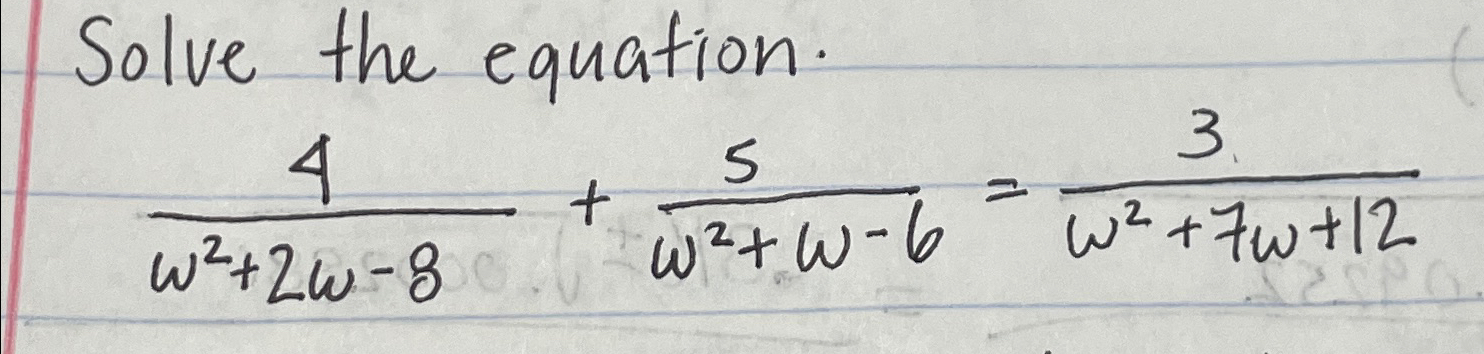 Solve the equation.
4/(ω²+2ω-8) + 5/(ω²+ω-6) = 3/(ω²+7ω+12)